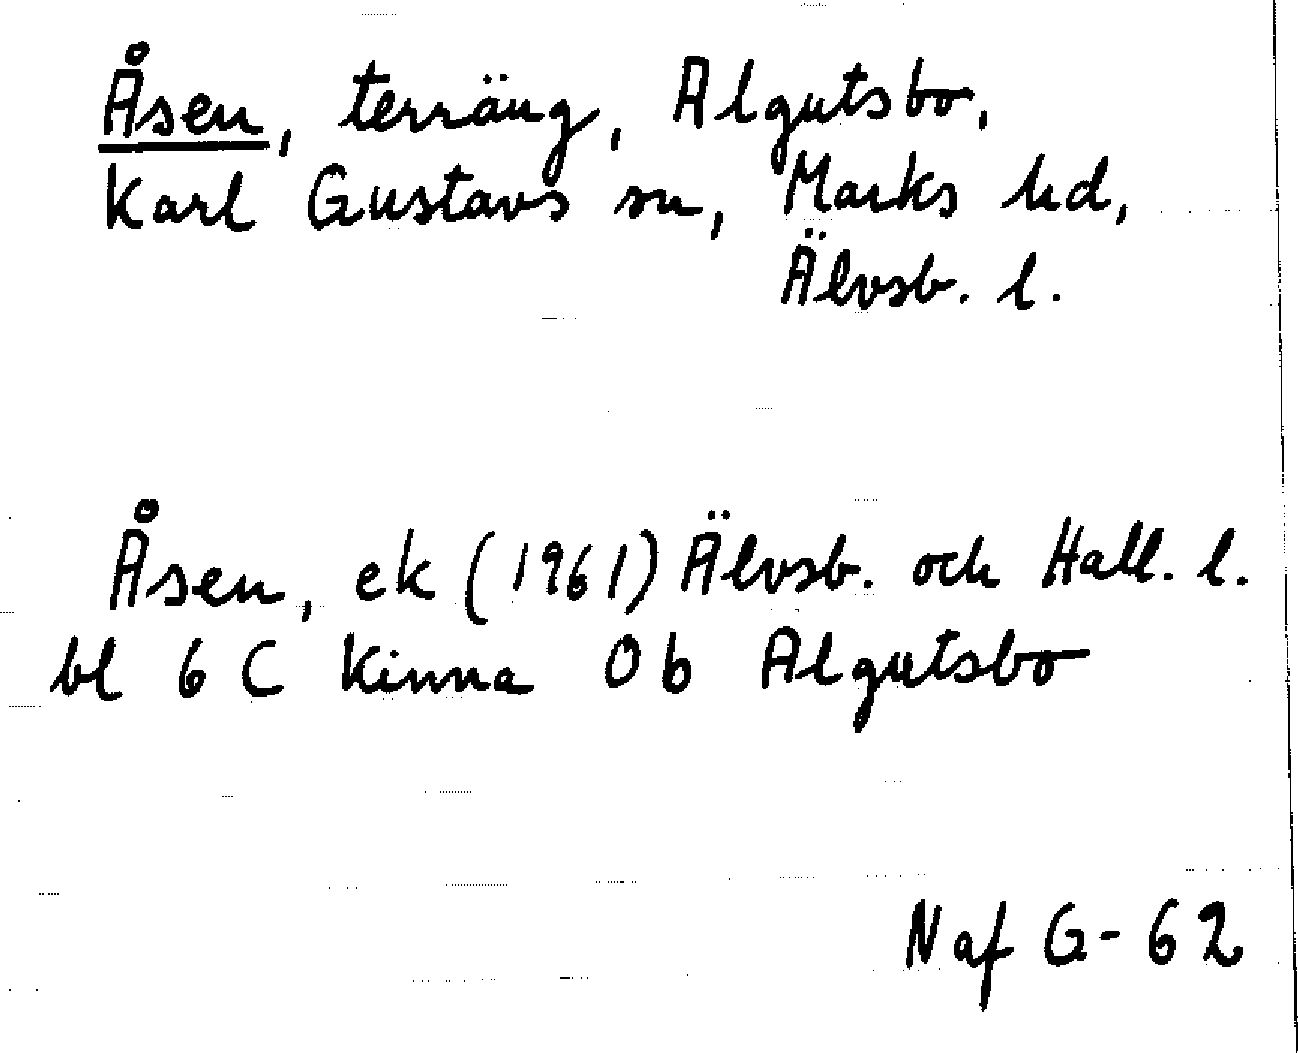 Åsen, terräng, Algutsbo,
Karl Gustavs sn, Marks hd,
Älvsb. l.
Åsen, ek (1961) Älvsb. och Hall. l.
bl 6 C Kinna 0 b Algutsbo
N af G-62